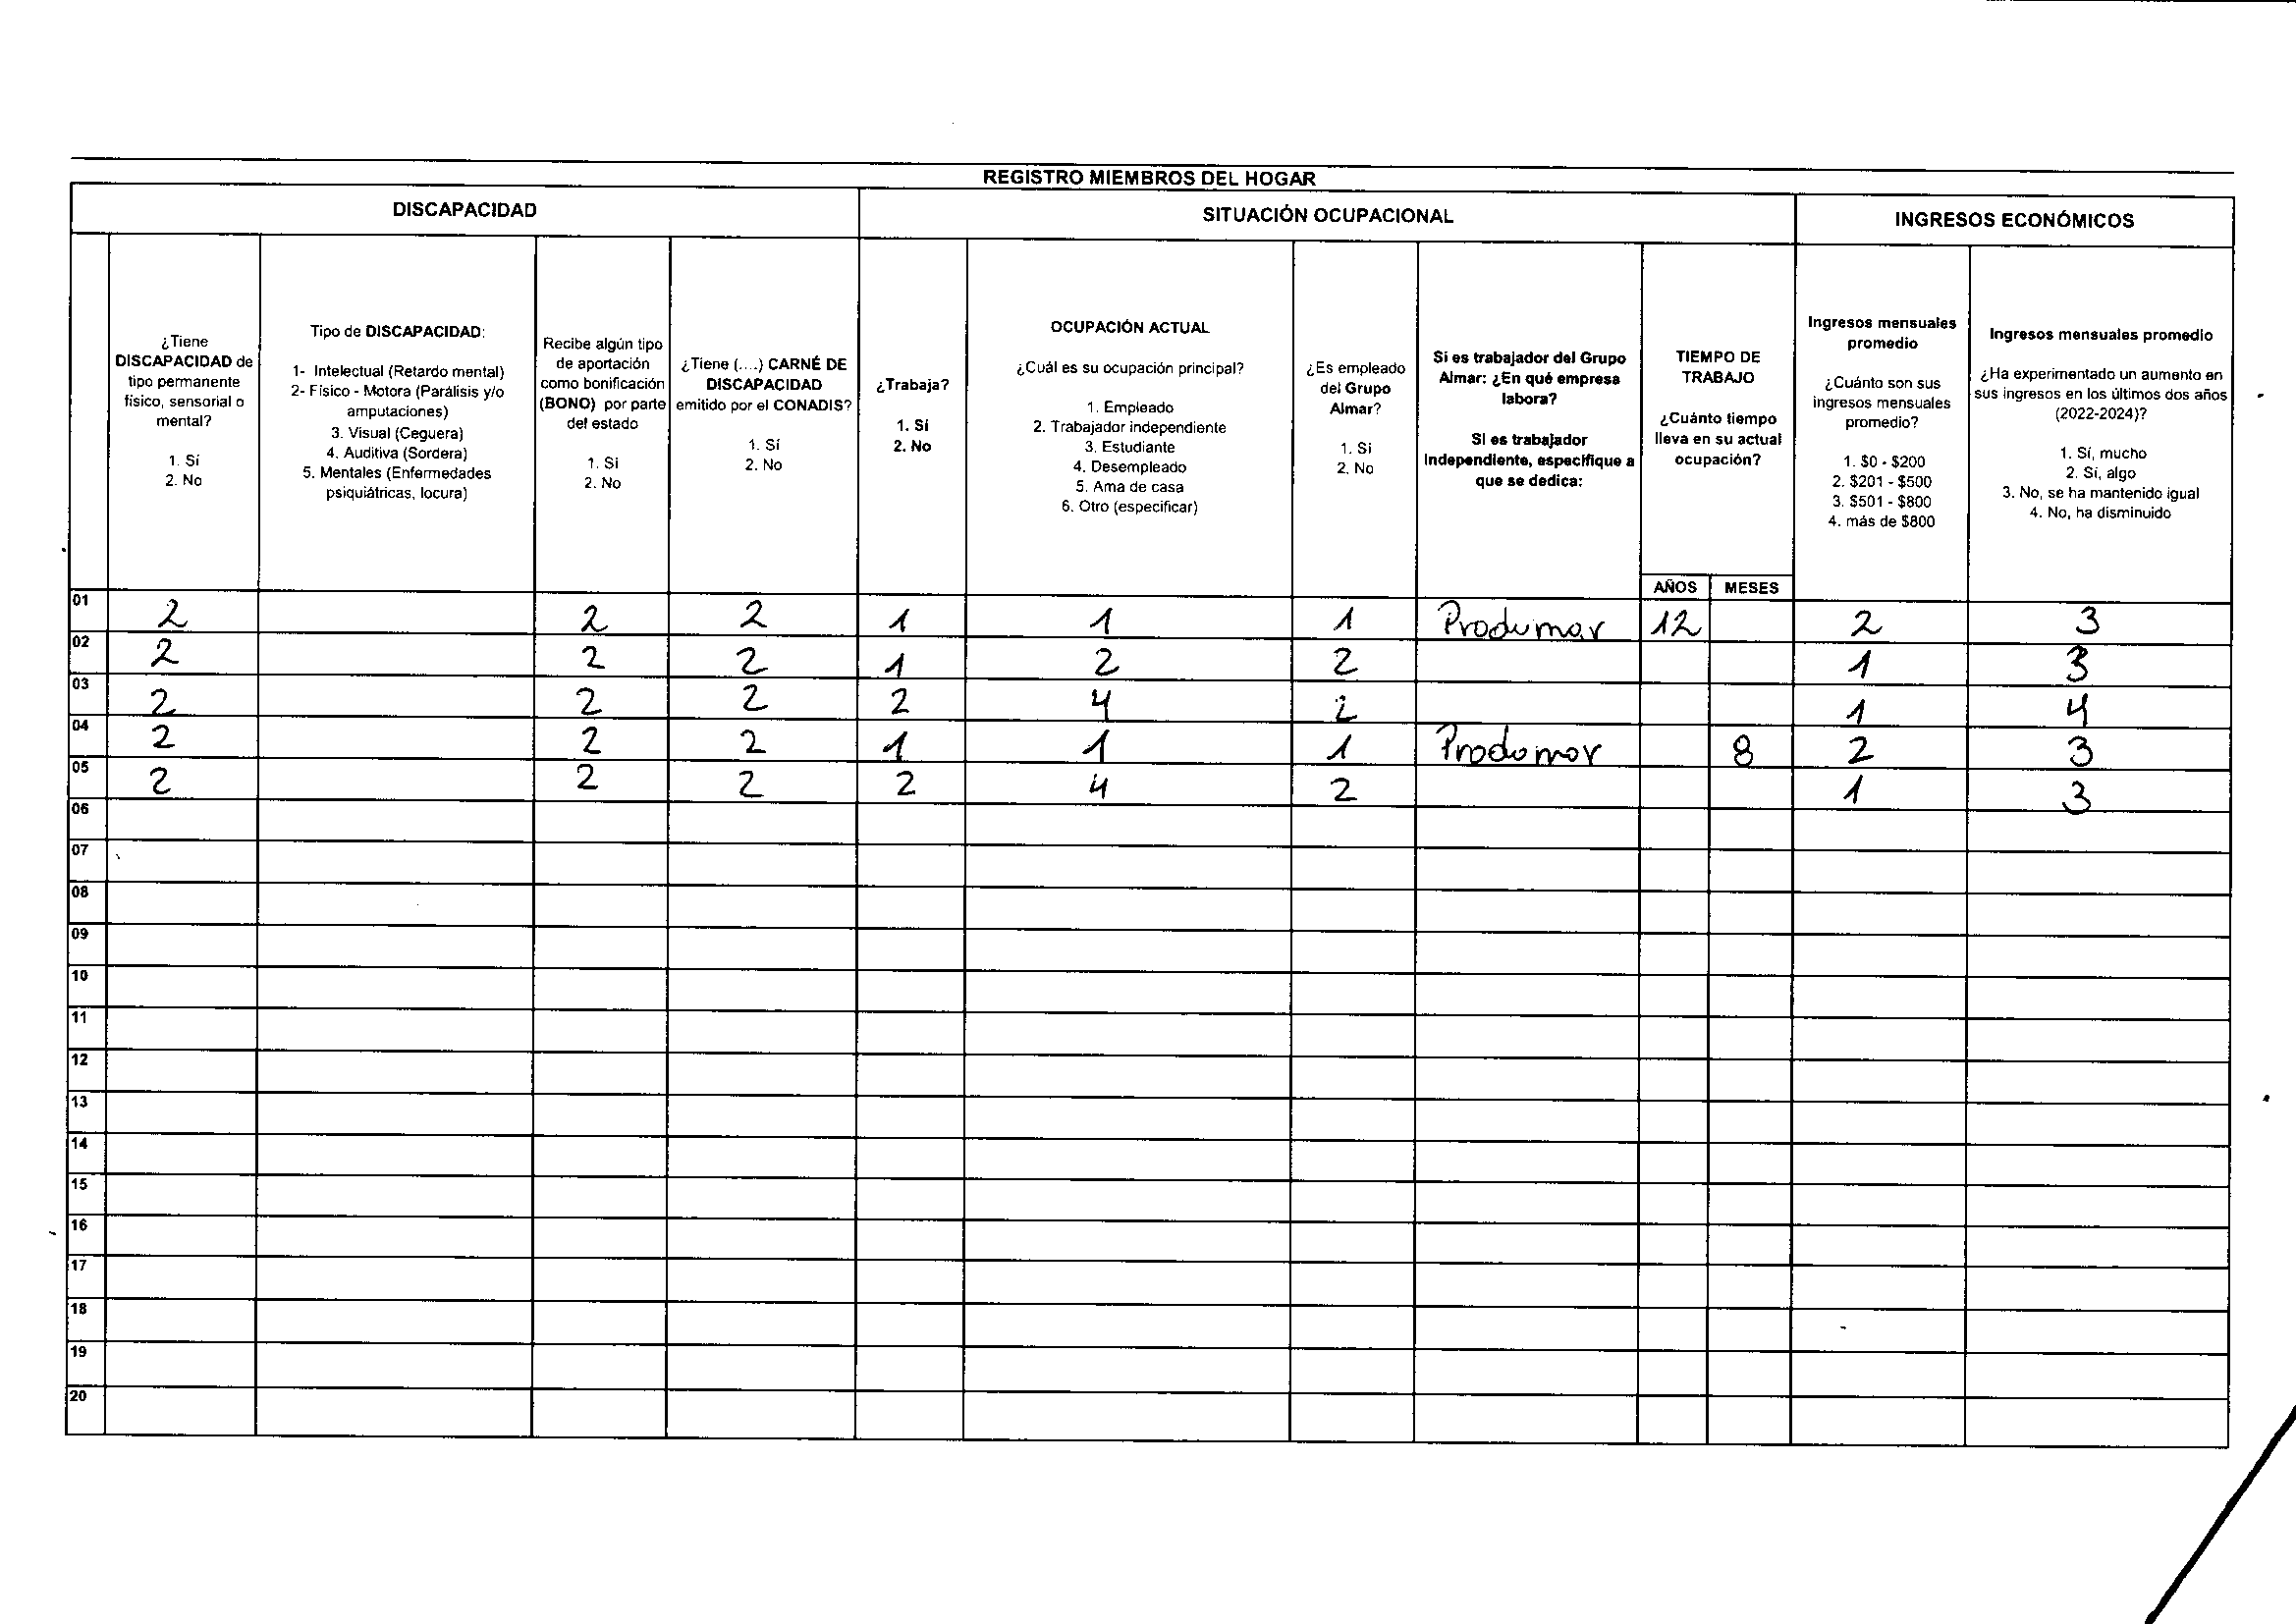 REGISTRO MIEMBROS DEL HOGAR
DISCAPACIDAD SITUACIÓN OCUPACIONAL INGRESOS ECONÓMICOS
¿Tiene
DISCAPACIDAD de
tipo permanente
físico, sensorial o
mental?
1. Sí
2. No
Tipo de DISCAPACIDAD:
1- Intelectual (Retardo mental)
2- Físico - Motora (Parálisis y/o
amputaciones)
3. Visual (Ceguera)
4. Auditiva (Sordera)
5. Mentales (Enfermedades
psiquiátricas, locura)
Recibe algún tipo
de aportación
como bonificación
(BONO) por parte
del estado
1. Si
2. No
¿Tiene (....) CARNÉ DE
DISCAPACIDAD
emitido por el CONADIS?
1. Sí
2. No
¿Trabaja?
1. Sí
2. No
OCUPACIÓN ACTUAL
¿Cuál es su ocupación principal?
1. Empleado
2. Trabajador independiente
3. Estudiante
4. Desempleado
5. Ama de casa
6. Otro (especificar)
¿Es empleado
del Grupo
Almar?
1. Sí
2. No
Si es trabajador del Grupo
Almar: ¿En qué empresa
labora?
Si es trabajador
independiente, especifique a
que se dedica:
TIEMPO DE
TRABAJO
¿Cuánto tiempo
lleva en su actual
ocupación?
AÑOS MESES
Ingresos mensuales
promedio
¿Cuánto son sus
ingresos mensuales
promedio?
1. $0 - $200
2. $201 - $500
3. $501 - $800
4. más de $800
Ingresos mensuales promedio
¿Ha experimentado un aumento en
sus ingresos en los últimos dos años
(2022-2024)?
1. Sí, mucho
2. Sí, algo
3. No, se ha mantenido igual
4. No, ha disminuido
01 2 2 2 1 1 1 Produmar 12 2 3
02 2 2 2 1 2 2 1 3
03 2 2 2 2 4 2 1 4
04 2 2 2 1 1 1 Produmar 8 2 3
05 2 2 2 2 4 2 1 3
06
07
08
09
10
11
12
13
14
15
16
17
18
19
20